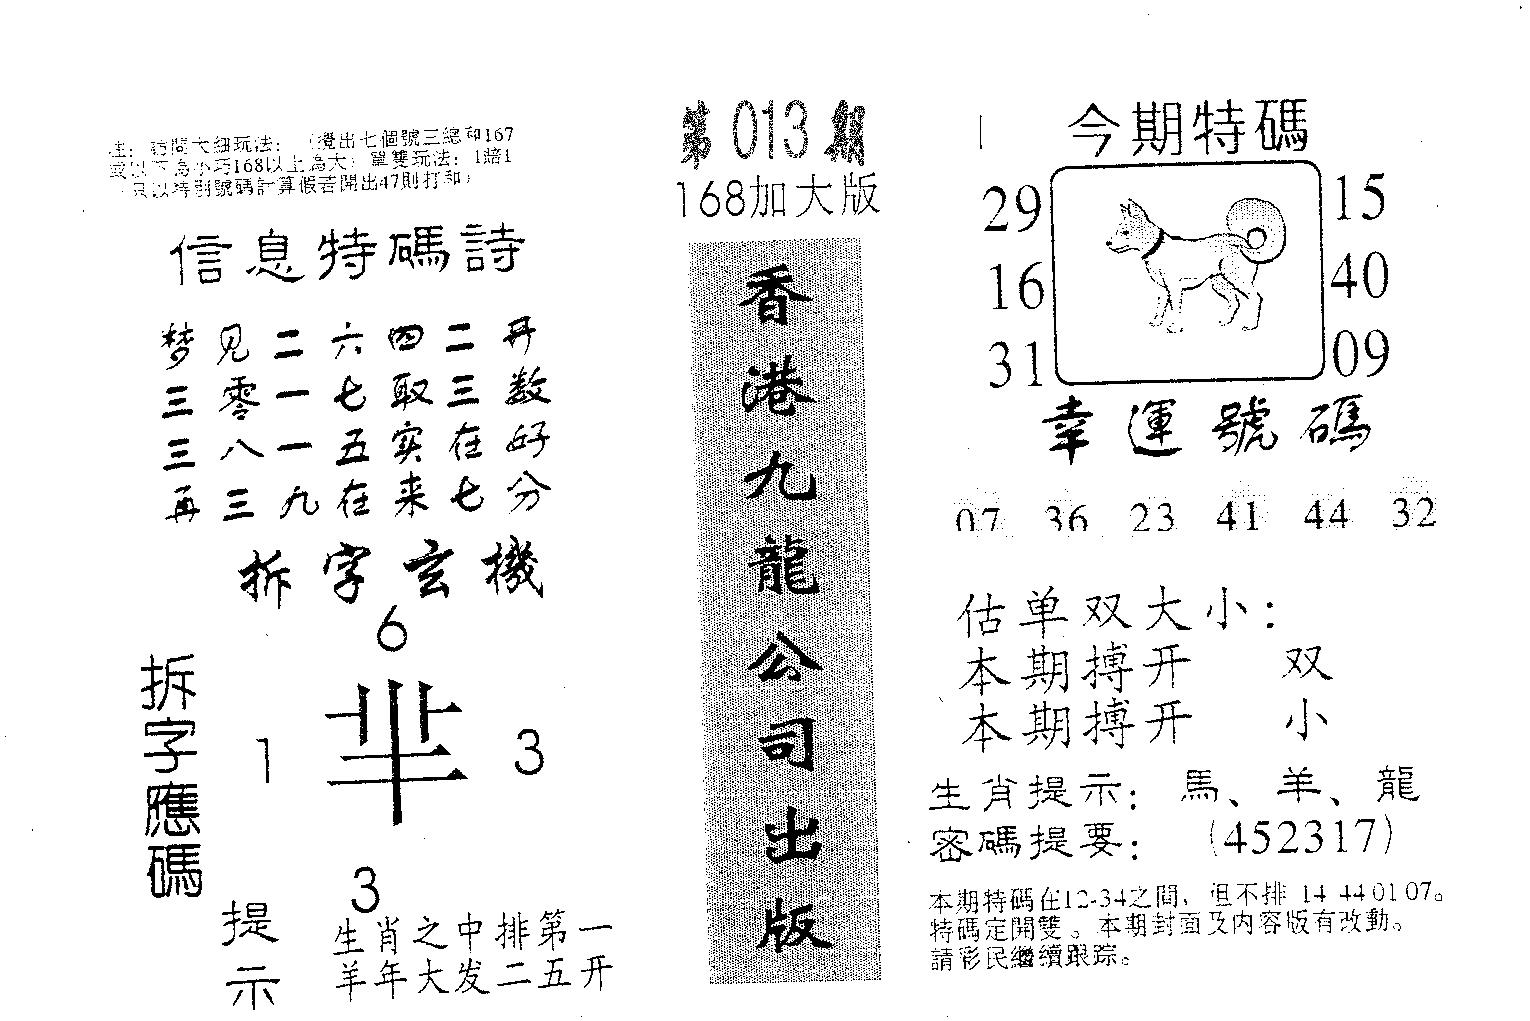 第013期
168加大版
香港九龍公司出版
注：訪問大細玩法：（攪出七個號三總和167
或以下為小巧168以上為大）單雙玩法：1賠1
（只以特別號碼計算假若開出47則打和）
信息特碼詩
梦见二六四二开
三零一七取三数
三八一五实在好
再三九在来七分
拆字玄機
6
1
3
3
拆字應碼
提示
生肖之中排第一
羊年大发二五开
今期特碼
29
16
31
15
40
09
幸運號碼
07 36 23 41 44 32
估单双大小：
本期搏开 双
本期搏开 小
生肖提示：馬、羊、龍
密碼提要：（452317）
本期特碼在12-34之間，但不排 14 44 01 07。
特碼定開雙。本期封面及内容版有改動。
請彩民繼續跟踪。